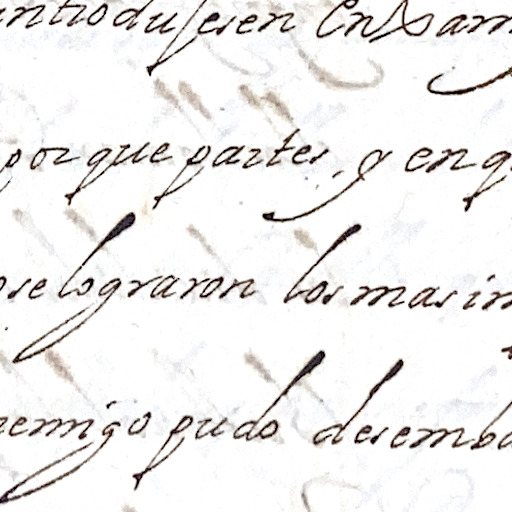 introdusesen en
por que partes, y en q
se lograron los mas in
nemigo pudo desemba